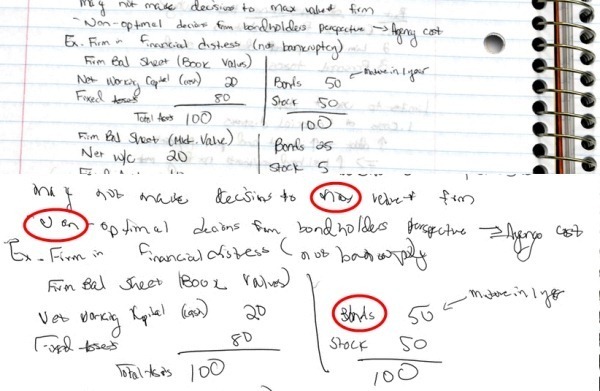 may not make decisions to max value of firm
- Non-optimal decisions from bondholders perspective → Agency cost
Ex. Firm in financial distress (not bankruptcy)
Firm Bal Sheet (Book Values)
Net Working Capital (cash) 20 Bonds 50 ← mature in 1 year
Fixed Assets 80 Stock 50
Total Assets 100 100
Firm Bal Sheet (Mkt. Value)
Net W/C 20 Bonds 25
Stock 5
may not make decisions to max value of firm
Non-optimal decisions from bondholders perspective → Agency cost
Ex. Firm in Financial distress (not bankruptcy
Firm Bal Sheet (Book Values)
Net Working Capital (cash) 20 Bonds 50 ← mature in 1 year
Fixed Assets 80 Stock 50
Total Assets 100 100